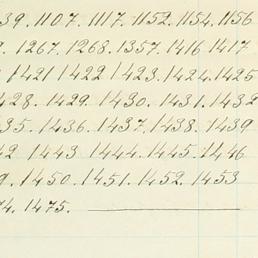 39. 1107. 1117. 1152. 1154. 1156
. 1267. 1268. 1357. 1416 1417
1421 1422 1423. 1424. 1425
428. 1429. 1430. 1431. 1432
35. 1436. 1437. 1438. 1439
42 1443 1444. 1445. 1446
9. 1450. 1451. 1452. 1453
74. 1475.